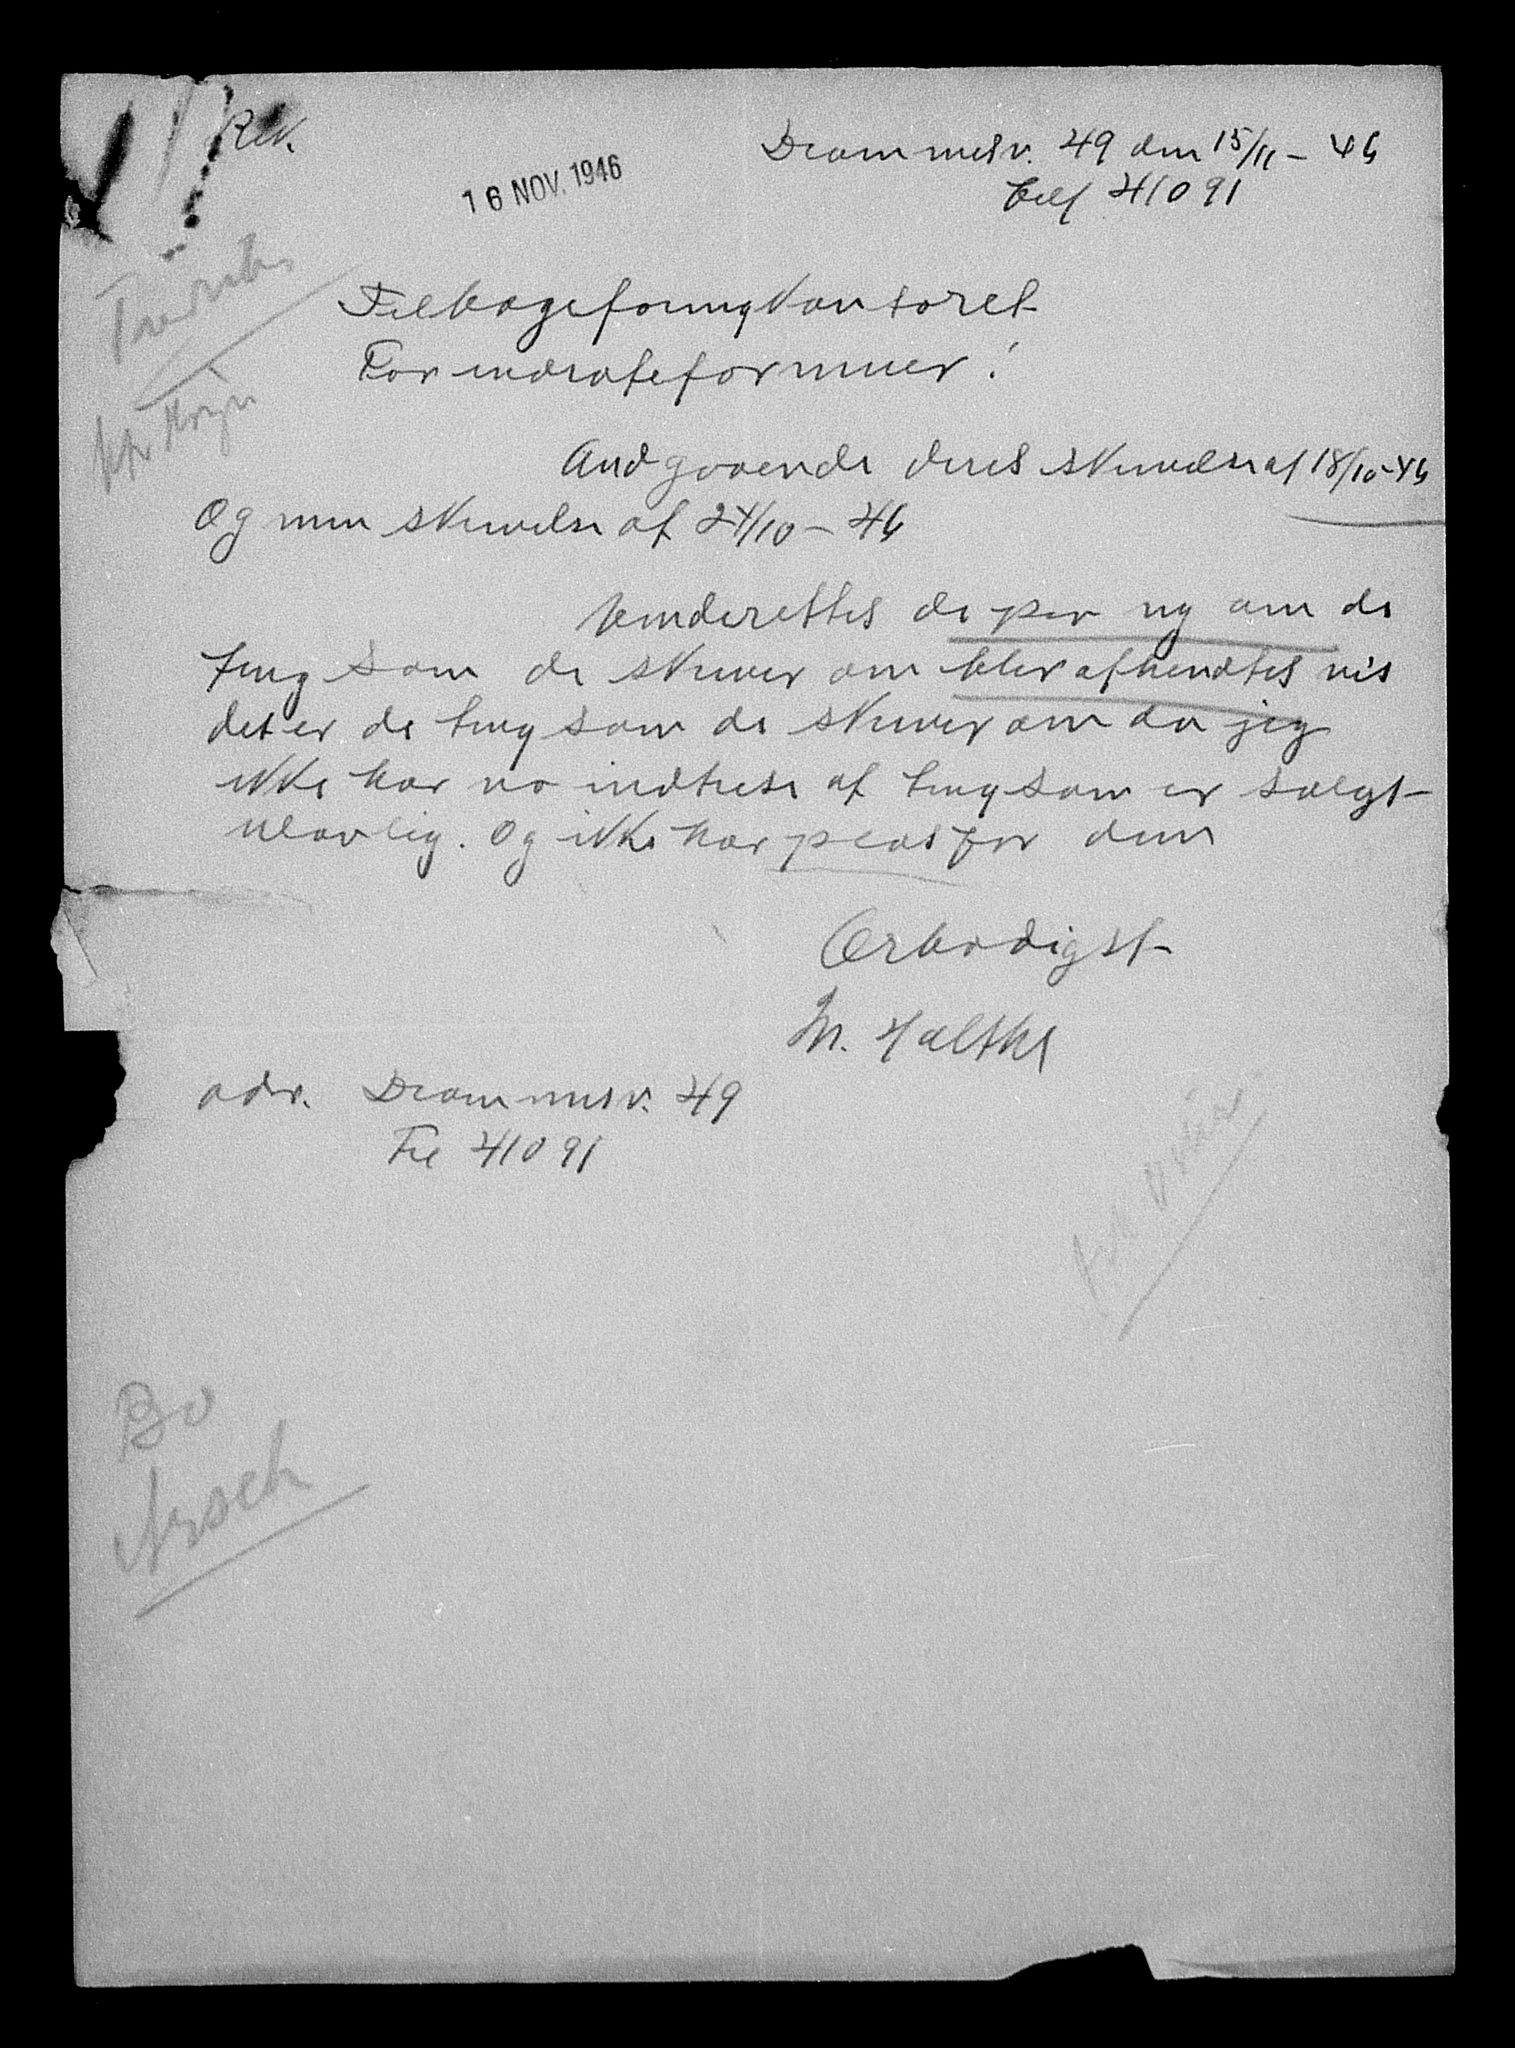 Rek.
Drammesv. 49 den 15/11 - 46
telf 41091
16 NOV. 1946
Tilbageføringkontoret
For indrateformuer!
Andgaaende deres skrivelse af 18/10-46
Og min skrivelse af 24/10 - 46
Underettes de per ny om de
ting som de skriver om blev afhendtes vis
det er de ting som de skriver om da jeg
ikke har no indtrese af ting som er solgt
ulovlig. Og ikke har plas for dem
Ærbødigst
M.
adr. Drammesv. 49
Tel 41091
Bo
Hrsch